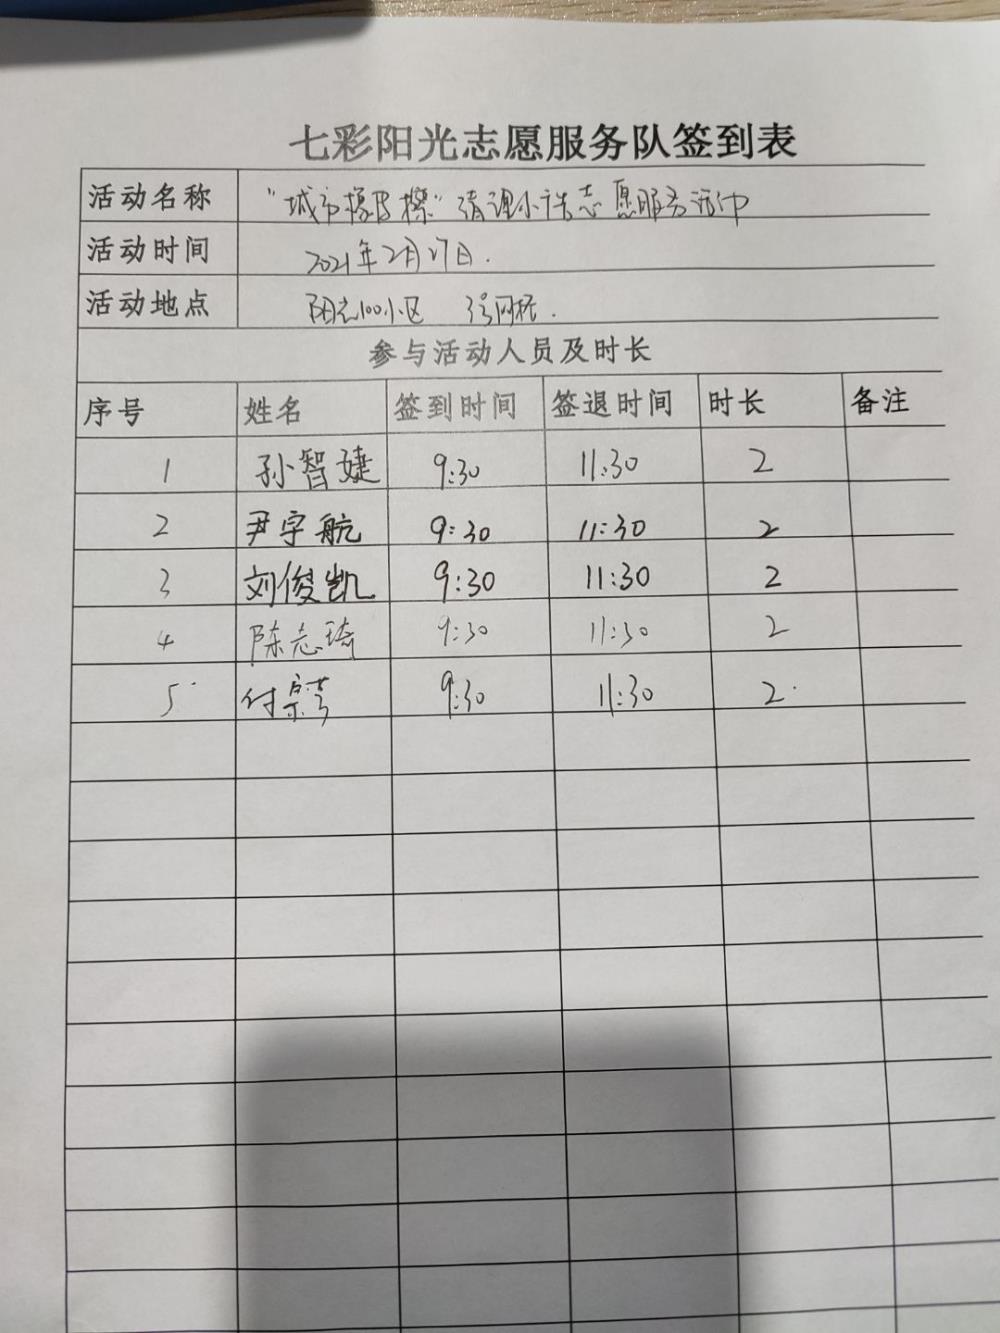 七彩阳光志愿服务队签到表
活动名称 "城市橡皮擦"清理小广告志愿服务活动
活动时间 2021年2月27日.
活动地点 阳光100小区 3号网格.
参与活动人员及时长
序号 姓名 签到时间 签退时间 时长 备注
1 孙智婕 9:30 11:30 2
2 尹宇航 9:30 11:30 2
3 刘俊凯 9:30 11:30 2
4 陈志琦 9:30 11:30 2
5 付 9:30 11:30 2